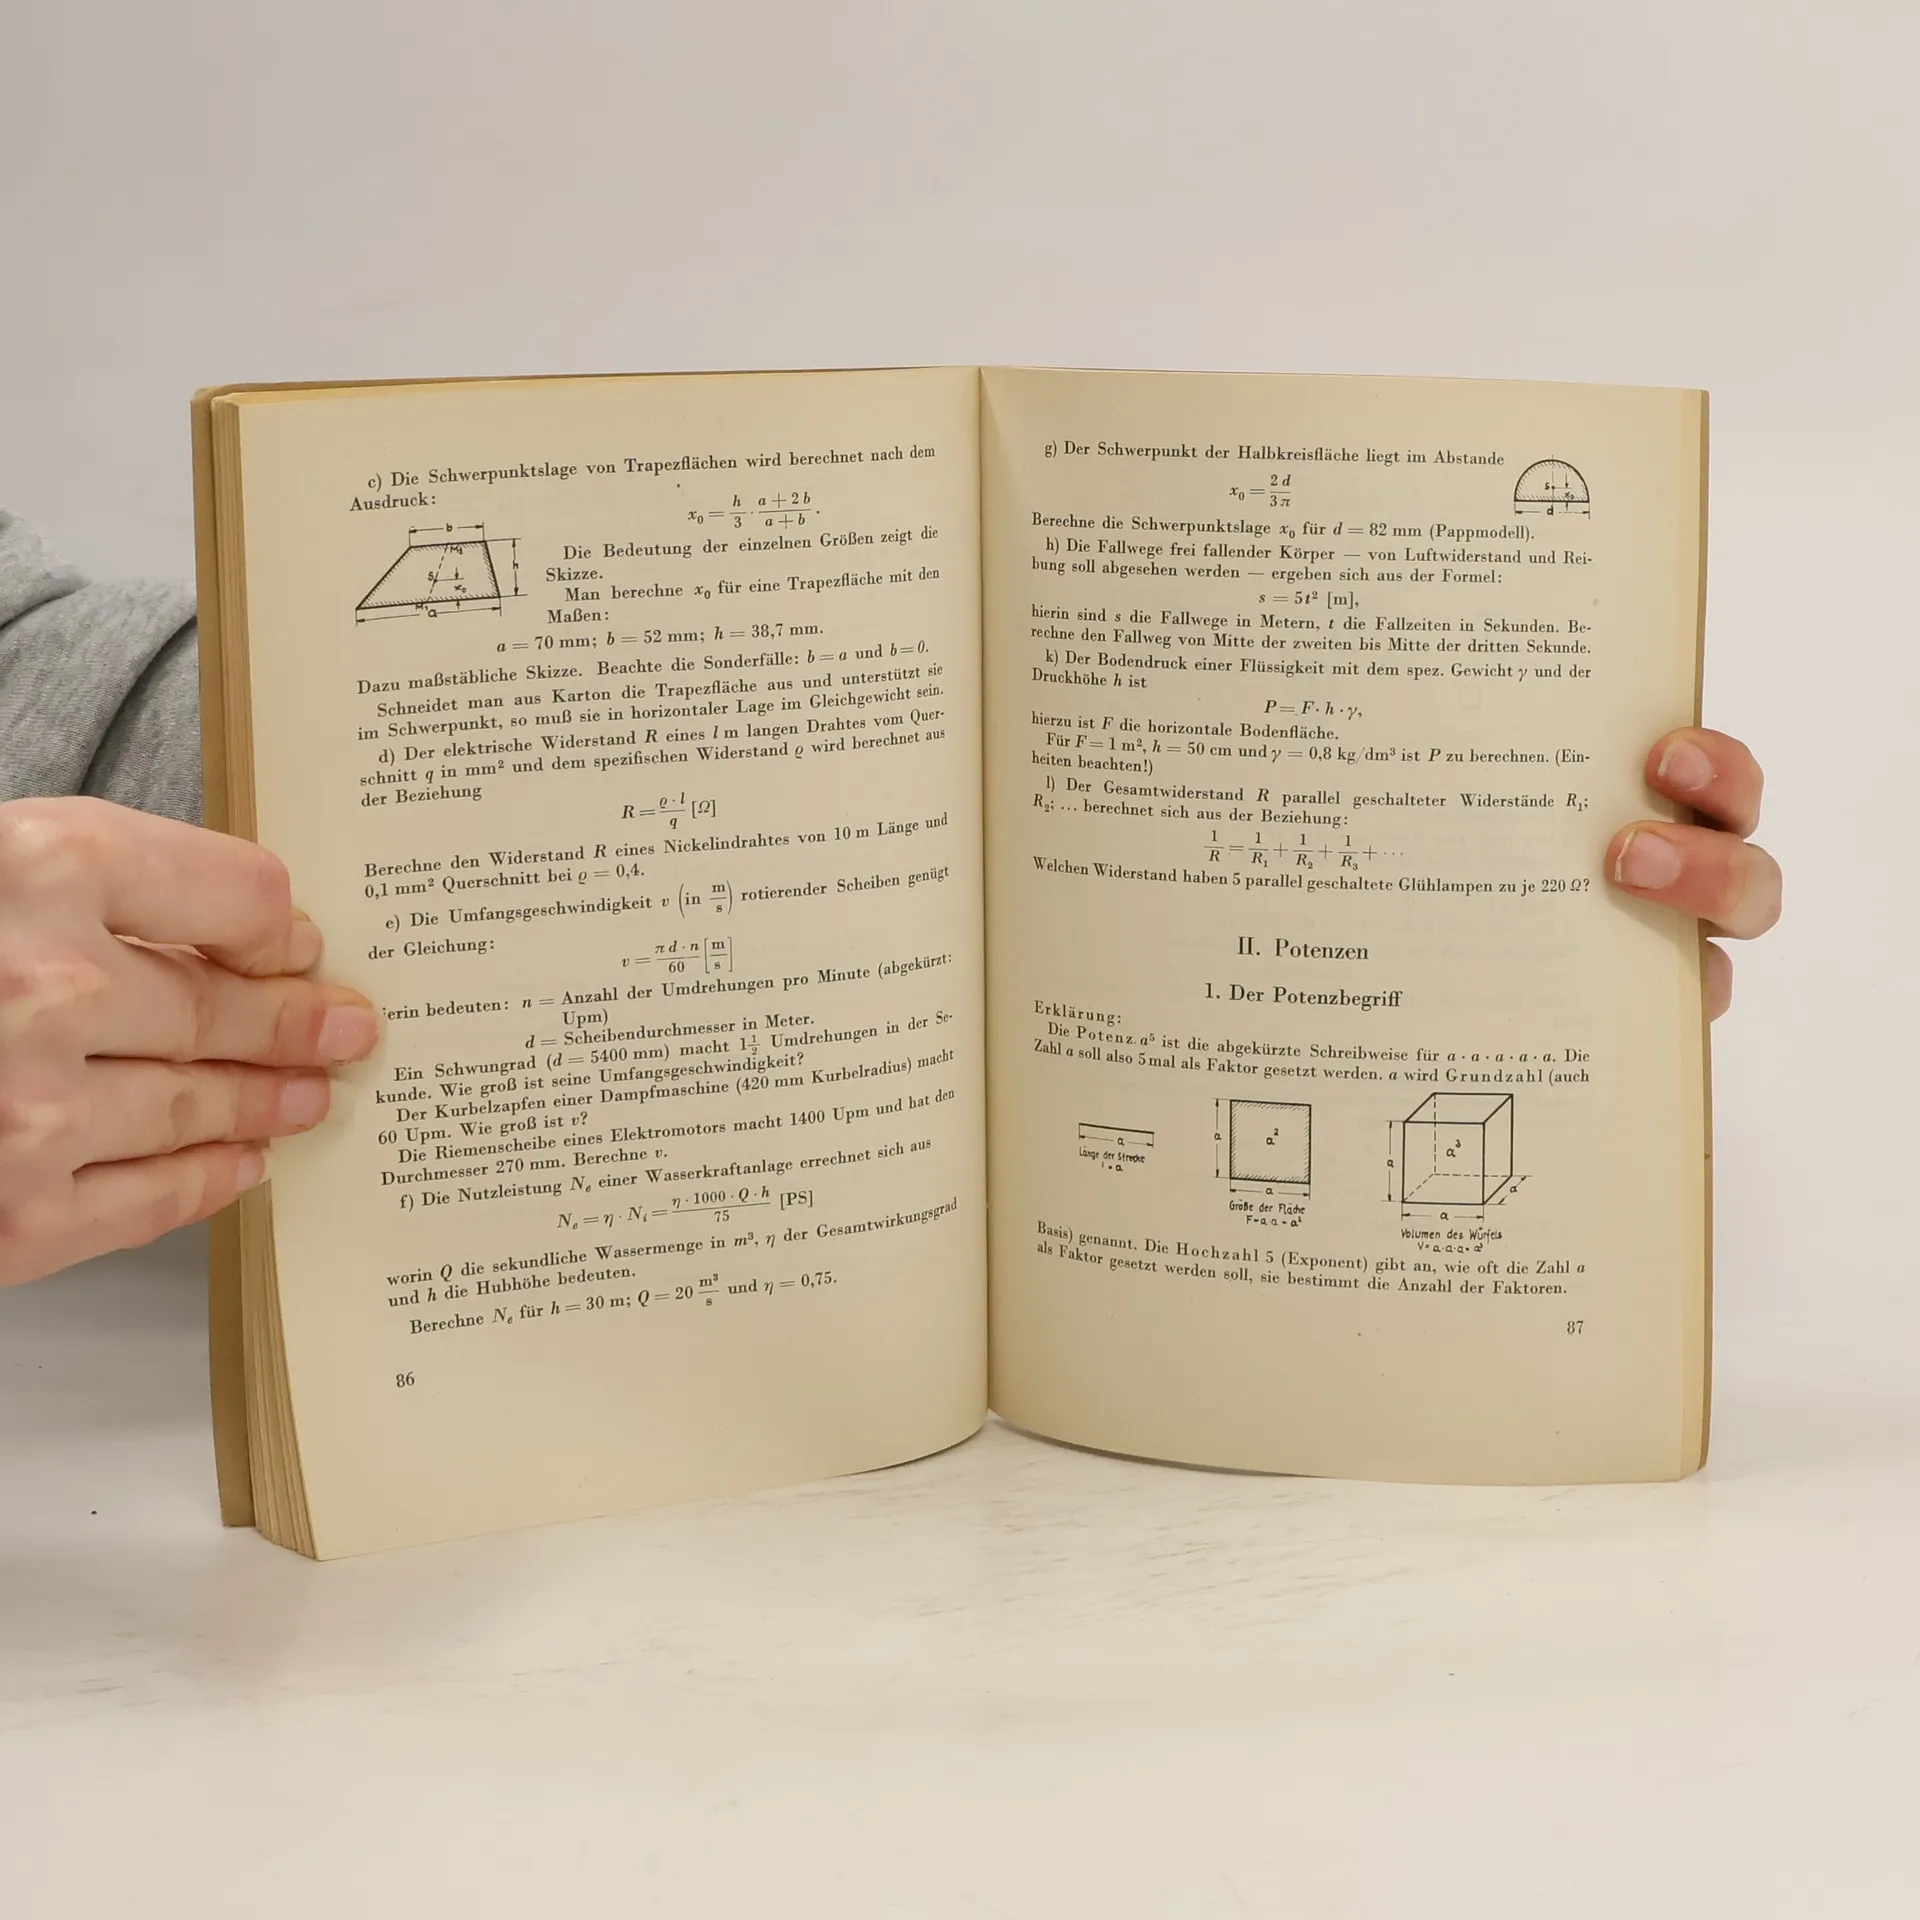 c) Die Schwerpunktslage von Trapezflächen wird berechnet nach dem
Ausdruck:
x₀ = h/3 · (a + 2 b)/(a + b).
b
M₂
S
x₀
h
M₁
a
Die Bedeutung der einzelnen Größen zeigt die
Skizze.
Man berechne x₀ für eine Trapezfläche mit den
Maßen:
a = 70 mm; b = 52 mm; h = 38,7 mm.
Dazu maßstäbliche Skizze. Beachte die Sonderfälle: b = a und b = 0.
Schneidet man aus Karton die Trapezfläche aus und unterstützt sie
im Schwerpunkt, so muß sie in horizontaler Lage im Gleichgewicht sein.
d) Der elektrische Widerstand R eines l m langen Drahtes vom Quer-
schnitt q in mm² und dem spezifischen Widerstand ϱ wird berechnet aus
der Beziehung
R = (ϱ · l)/q [Ω]
Berechne den Widerstand R eines Nickelindrahtes von 10 m Länge und
0,1 mm² Querschnitt bei ϱ = 0,4.
e) Die Umfangsgeschwindigkeit v (in m/s) rotierender Scheiben genügt
der Gleichung:
v = (π d · n)/60 [m/s]
ierin bedeuten: n = Anzahl der Umdrehungen pro Minute (abgekürzt:
Upm)
d = Scheibendurchmesser in Meter.
Ein Schwungrad (d = 5400 mm) macht 1½ Umdrehungen in der Se-
kunde. Wie groß ist seine Umfangsgeschwindigkeit?
Der Kurbelzapfen einer Dampfmaschine (420 mm Kurbelradius) macht
60 Upm. Wie groß ist v?
Die Riemenscheibe eines Elektromotors macht 1400 Upm und hat den
Durchmesser 270 mm. Berechne v.
f) Die Nutzleistung Nₑ einer Wasserkraftanlage errechnet sich aus
Nₑ = η · Nᵢ = (η · 1000 · Q · h)/75 [PS]
worin Q die sekundliche Wassermenge in m³, η der Gesamtwirkungsgrad
und h die Hubhöhe bedeuten.
Berechne Nₑ für h = 30 m; Q = 20 m³/s und η = 0,75.
86
g) Der Schwerpunkt der Halbkreisfläche liegt im Abstande
x₀ = 2 d/3 π
S
x₀
d
Berechne die Schwerpunktslage x₀ für d = 82 mm (Pappmodell).
h) Die Fallwege frei fallender Körper — von Luftwiderstand und Rei-
bung soll abgesehen werden — ergeben sich aus der Formel:
s = 5t² [m],
hierin sind s die Fallwege in Metern, t die Fallzeiten in Sekunden. Be-
rechne den Fallweg von Mitte der zweiten bis Mitte der dritten Sekunde.
k) Der Bodendruck einer Flüssigkeit mit dem spez. Gewicht γ und der
Druckhöhe h ist
P = F · h · γ,
hierzu ist F die horizontale Bodenfläche.
Für F = 1 m², h = 50 cm und γ = 0,8 kg/dm³ ist P zu berechnen. (Ein-
heiten beachten!)
l) Der Gesamtwiderstand R parallel geschalteter Widerstände R₁;
R₂; ... berechnet sich aus der Beziehung:
1/R = 1/R₁ + 1/R₂ + 1/R₃ + ···
Welchen Widerstand haben 5 parallel geschaltete Glühlampen zu je 220 Ω?
II. Potenzen
1. Der Potenzbegriff
Erklärung:
Die Potenz a⁵ ist die abgekürzte Schreibweise für a · a · a · a · a. Die
Zahl a soll also 5mal als Faktor gesetzt werden. a wird Grundzahl (auch
a
Länge der Strecke
l = a
a
a²
a
Größe der Fläche
F = a · a = a²
a
a³
a
a
Volumen des Würfels
V = a · a · a = a³
Basis) genannt. Die Hochzahl 5 (Exponent) gibt an, wie oft die Zahl a
als Faktor gesetzt werden soll, sie bestimmt die Anzahl der Faktoren.
87